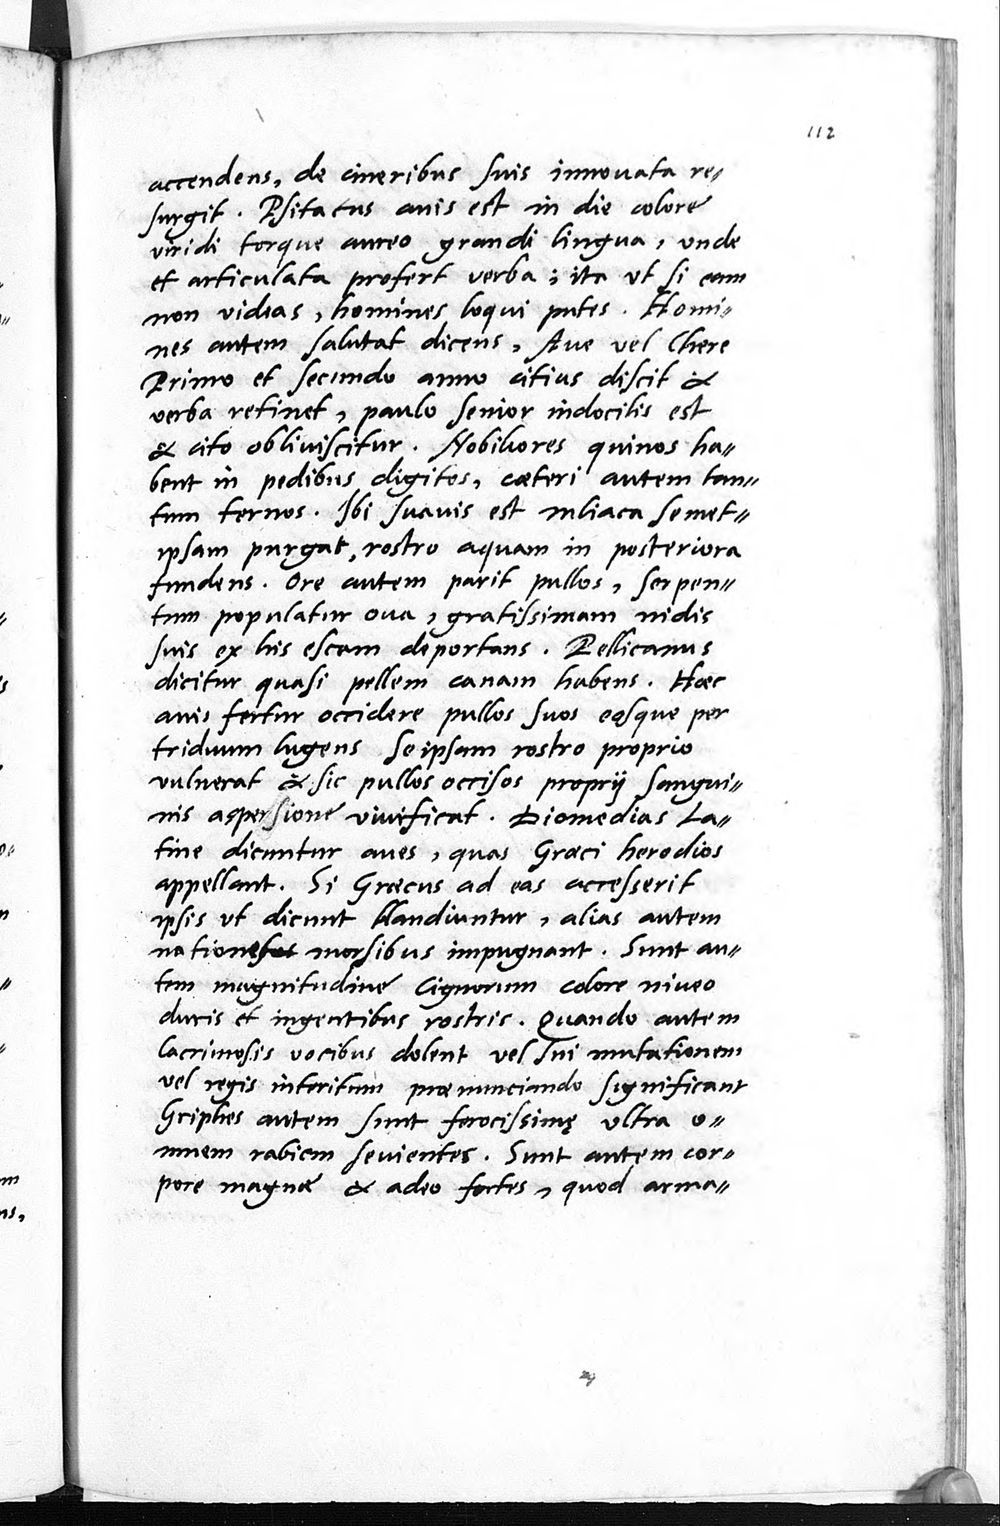 112
accendens, de cineribus suis innovata re„
surgit. Psitacus avis est in die colore
viridi torque aureo grandi lingua, unde
et articulata profert verba; ita ut si eam
non videas, homines loqui putes. Homi„
nes autem salutat dicens, Ave vel Chere
Primo et secundo anno citius discit &
verba retinet, paulo senior indocilis est
& cito obliviscitur. Nobiliores quinos ha„
bent in pedibus digitos, cæteri autem tan„
tum ternos. Ibi suavis est mliaca semet„
ipsam purgat, rostro aquam in posteriora
fundens. Ore autem parit pullos, serpen„
tum populatur ova, gratissimam nidis
suis ex his escam deportans. Pellicanus
dicitur quasi pellem canam habens. Hæc
avis fertur occidere pullos suos eosque per
triduum lugens seipsam rostro proprio
vulnerat & sic pullos occisos proprij sangui„
nis aspersione vivificat. Diomedias La„
tine dicuntur aves, quas Græci herodios
appellant. Si Græcus ad eas accesserit
ipsis ut dicunt blandiuntur, alias autem
nationes morsibus impugnant. Sunt au„
tem magnitudine Cignorum colore niveo
duris et ingentibus rostris. Quando autem
lacrimosis vocibus dolent vel sui mutationem
vel regis interitum prænunciando significant
Griphes autem sunt ferocissimę ultra o„
mnem rabiem sevientes. Sunt autem cor„
pore magnæ & adeo fortes, quod arma„